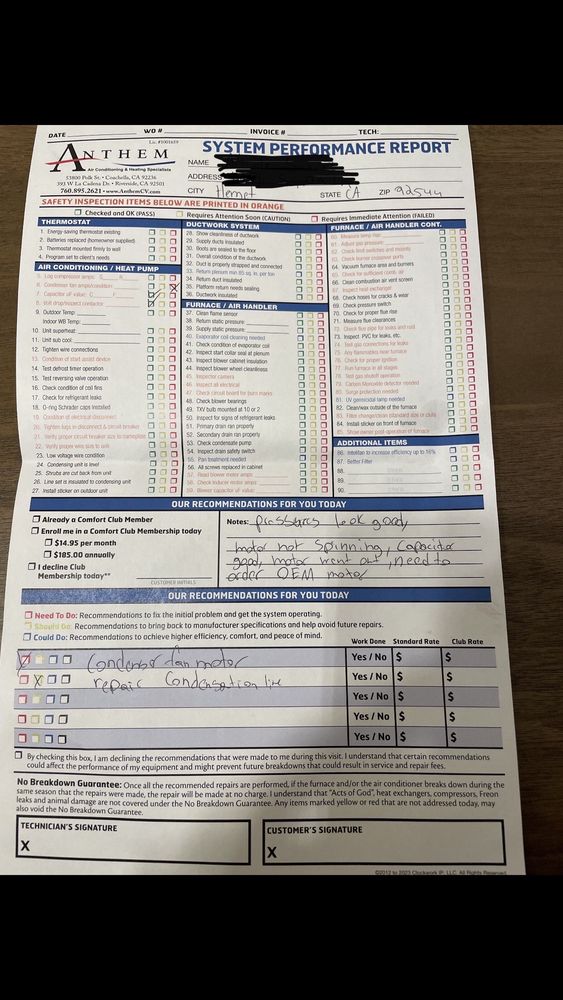 DATE
WO #
INVOICE #
TECH:
Lic. #1001659
ANTHEM
Air Conditioning & Heating Specialists
53800 Polk St. • Coachella, CA 92236
393 W La Cadena Dr. • Riverside, CA 92501
760.895.2621 • www.AnthemCV.com
SYSTEM PERFORMANCE REPORT
NAME
ADDRESS
CITY Hemet STATE CA ZIP 92544
SAFETY INSPECTION ITEMS BELOW ARE PRINTED IN ORANGE
Checked and OK (PASS)
Requires Attention Soon (CAUTION)
Requires Immediate Attention (FAILED)
THERMOSTAT
1. Energy-saving thermostat existing
2. Batteries replaced (homeowner supplied)
3. Thermostat mounted firmly to wall
4. Program set to client's needs
AIR CONDITIONING / HEAT PUMP
5. Log compressor amps:
6. Condenser fan amps/condition
7. Capacitor uF value: C
8. Volt drop/inspect contactor
9. Outdoor Temp:
Indoor WB Temp:
10. Unit superheat:
11. Unit sub cool:
12. Tighten wire connections
13. Condition of start assist device
14. Test defrost timer operation
15. Test reversing valve operation
16. Check condition of coil fins
17. Check for refrigerant leaks
18. O-ring Schrader caps installed
19. Condition of electrical disconnect
20. Tighten lugs in disconnect & circuit breaker
21. Verify proper circuit breaker size to nameplate
22. Verify proper wire size to unit
23. Low voltage wire condition
24. Condensing unit is level
25. Shrubs are cut back from unit
26. Line set is insulated to condensing unit
27. Install sticker on outdoor unit
DUCTWORK SYSTEM
28. Show cleanliness of ductwork
29. Supply ducts insulated
30. Boots are sealed to the floor
31. Overall condition of the ductwork
32. Duct is properly strapped and connected
33. Return plenum min.85 sq. in. per ton
34. Return duct insulated
35. Platform return needs sealing
36. Ductwork insulated
FURNACE / AIR HANDLER
37. Clean flame sensor
38. Return static pressure:
39. Supply static pressure:
40. Evaporator coil cleaning needed
41. Check condition of evaporator coil
42. Inspect start collar seal at plenum
43. Inspect blower cabinet insulation
44. Inspect blower wheel cleanliness
45. Inspector camera
46. Inspect all electrical
47. Check circuit board for burn marks
48. Check blower bearings
49. TXV bulb mounted at 10 or 2
50. Inspect for signs of refrigerant leaks
51. Primary drain ran properly
52. Secondary drain ran properly
53. Check condensate pump
54. Inspect drain safety switch
55. Pan treatment needed
56. All screws replaced in cabinet
57. Read blower motor amps:
58. Check inducer motor amps:
59. Blower capacitor uF value:
FURNACE / AIR HANDLER CONT.
60. Measure temp rise:
61. Adjust gas pressure:
62. Check limit switches and mounts
63. Check burner crossover ports
64. Vacuum furnace area and burners
65. Check for sufficient comb. air
66. Clean combustion air vent screen
67. Inspect heat exchanger
68. Check hoses for cracks & wear
69. Check pressure switch
70. Check for proper flue rise
71. Measure flue clearances
72. Check flue pipe for leaks and rust
73. Inspect PVC for leaks, etc.
74. Test gas connections for leaks
75. Any flammables near furnace
76. Check for proper ignition
77. Run furnace in all stages
78. Test gas shutoff operation
79. Carbon Monoxide detector needed
80. Surge protection needed
81. UV germicidal lamp needed
82. Clean/wax outside of the furnace
83. Filter change/clean standard size or clubs
84. Install sticker on front of furnace
85. Show owner post-operation of furnace
ADDITIONAL ITEMS
86. IntelliFan to increase efficiency up to 16%
87. Better Filter
88.
89.
90.
OUR RECOMMENDATIONS FOR YOU TODAY
Already a Comfort Club Member
Enroll me in a Comfort Club Membership today
$14.95 per month
$185.00 annually
I decline Club
Membership today**
CUSTOMER INITIALS
Notes: pressures look good,
motor not spinning, Capacitor
good, motor went out, need to
order OEM motor
OUR RECOMMENDATIONS FOR YOU TODAY
Need To Do: Recommendations to fix the initial problem and get the system operating.
Should Do: Recommendations to bring back to manufacturer specifications and help avoid future repairs.
Could Do: Recommendations to achieve higher efficiency, comfort, and peace of mind.
Work Done Standard Rate Club Rate
Condensor fan motor Yes / No $ $
repair Condensation line Yes / No $ $
Yes / No $ $
Yes / No $ $
Yes / No $ $
By checking this box, I am declining the recommendations that were made to me during this visit. I understand that certain recommendations
could affect the performance of my equipment and might prevent future breakdowns that could result in service and repair fees.
No Breakdown Guarantee: Once all the recommended repairs are performed, if the furnace and/or the air conditioner breaks down during the
same season that the repairs were made, the repair will be made at no charge. I understand that "Acts of God", heat exchangers, compressors, Freon
leaks and animal damage are not covered under the No Breakdown Guarantee. Any items marked yellow or red that are not addressed today, may
also void the No Breakdown Guarantee.
TECHNICIAN'S SIGNATURE
X
CUSTOMER'S SIGNATURE
X
©2012 to 2023 Clockwork IP, LLC. All Rights Reserved.